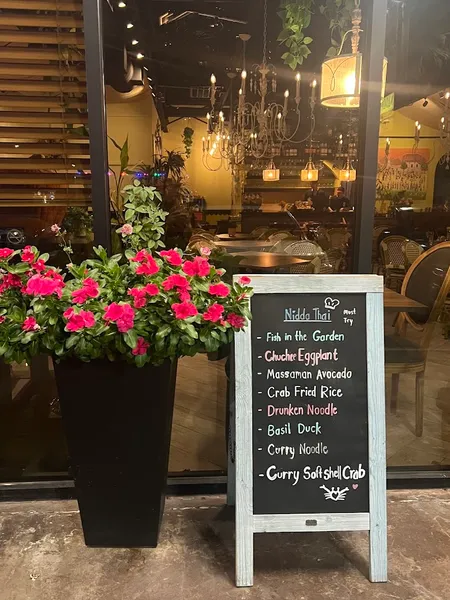 Nidda Thai
Must
Try
- Fish in the Garden
- Chucher Eggplant
- Massaman Avocado
- Crab Fried Rice
- Drunken Noodle
- Basil Duck
- Curry Noodle
- Curry Soft Shell Crab